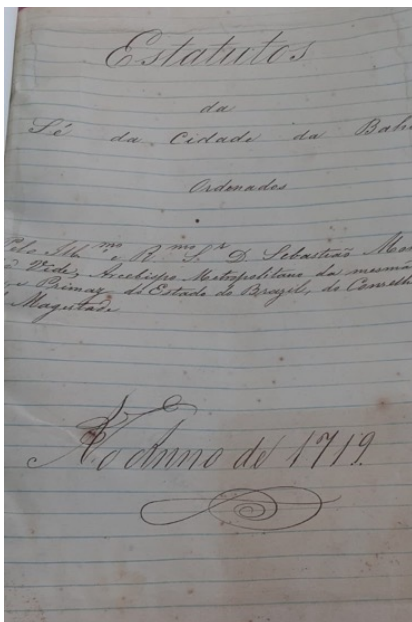 Estatutos
da
Sé da Cidade da Bahi
Ordenados
Pelo Illmo e Rmo Sr D. Sebastião Mon
Vide, Arcebispo Metropolitano da mesma
e Primaz do Estado do Brazil, do Conselho
Magestade
No Anno de 1719.